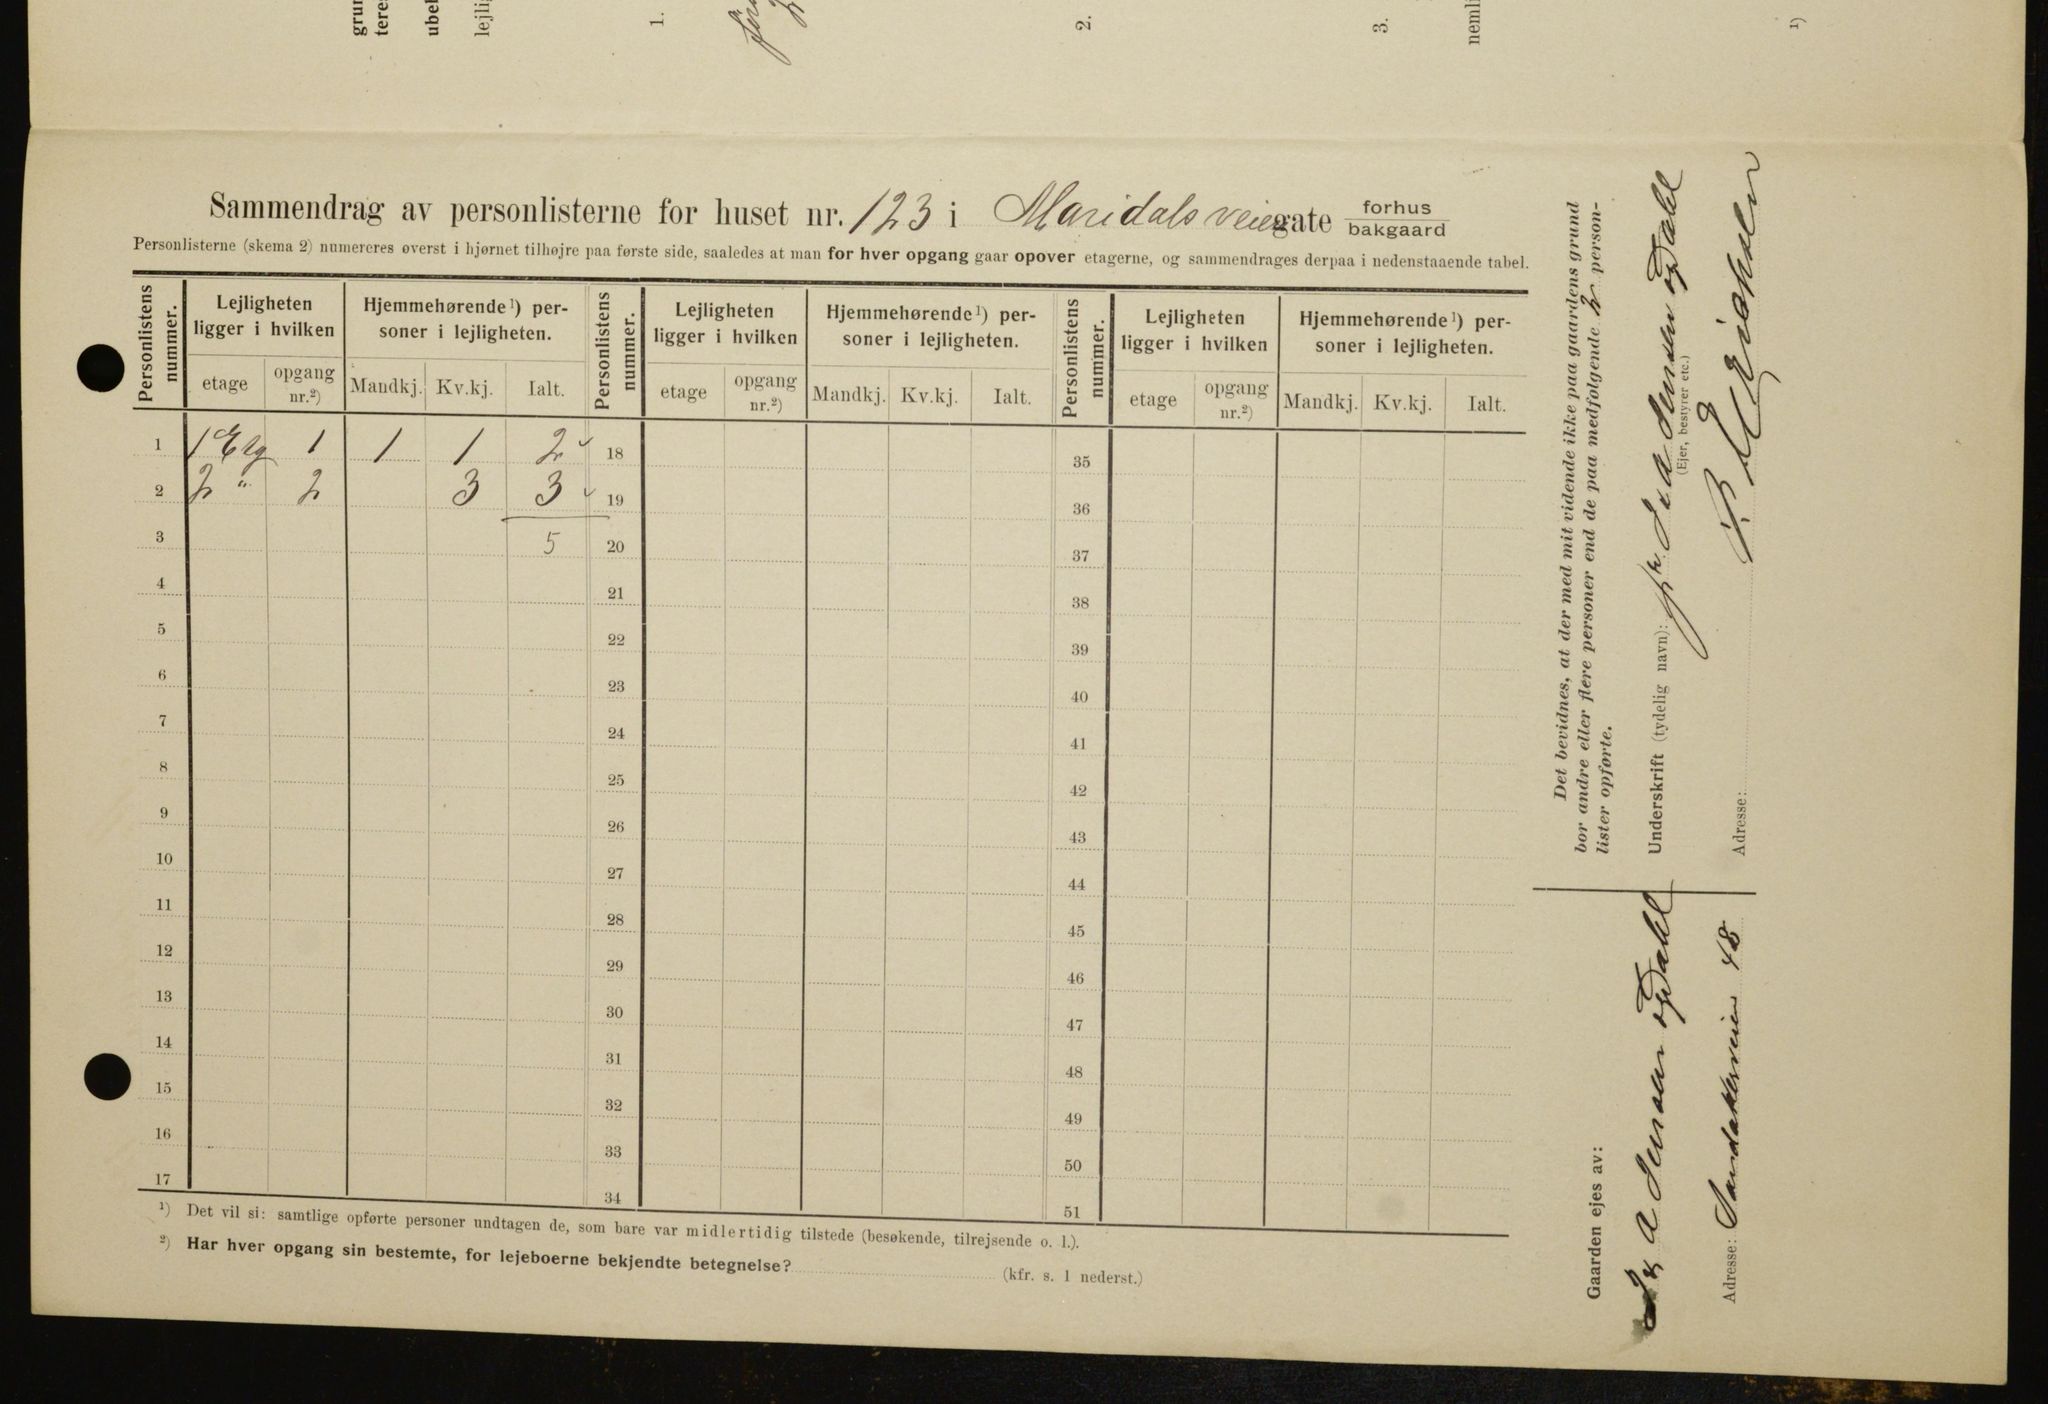 grun
teres
ubeb
lejlig
1.
2.
3.
nemli
1)
Sammendrag av personlisterne for huset nr. 123 i Maridalsveien gate forhus
bakgaard
Personlisterne (skema 2) numereres øverst i hjørnet tilhøjre paa første side, saaledes at man for hver opgang gaar opover etagerne, og sammendrages derpaa i nedenstaaende tabel.
Personlistens nummer. Lejligheten ligger i hvilken Hjemmehørende 1) per-soner i lejligheten. Personlistens nummer. Lejligheten ligger i hvilken Hjemmehørende 1) per-soner i lejligheten. Personlistens nummer. Lejligheten ligger i hvilken Hjemmehørende 1) per-soner i lejligheten.
etage opgang nr.2) Mandkj. Kv.kj. Ialt. etage opgang nr.2) Mandkj. Kv.kj. Ialt. etage opgang nr.2) Mandkj. Kv.kj. Ialt.
1 1 Etg 1 1 1 2 ✓ 18 35
2 2 " 2 3 3 ✓ 19 36
3 5 20 37
4 21 38
5 22 39
6 23 40
7 24 41
8 25 42
9 26 43
10 27 44
11 28 45
12 29 46
13 30 47
14 31 48
15 32 49
16 33 50
17 34 51
1) Det vil si: samtlige opførte personer undtagen de, som bare var midlertidig tilstede (besøkende, tilrejsende o. l.).
2) Har hver opgang sin bestemte, for lejeboerne bekjendte betegnelse? (kfr. s. 1 nederst.)
Det bevidnes, at der med mit vidende ikke paa gaardens grund
bor andre eller flere personer end de paa medfølgende 2 person-
lister opførte.
Underskrift (tydelig navn): pr A Jensen og Dahl
(Ejer, bestyrer etc.)
Adresse:
Gaarden ejes av:
A Jensen og Dahl
Adresse: Sandakerveien 48